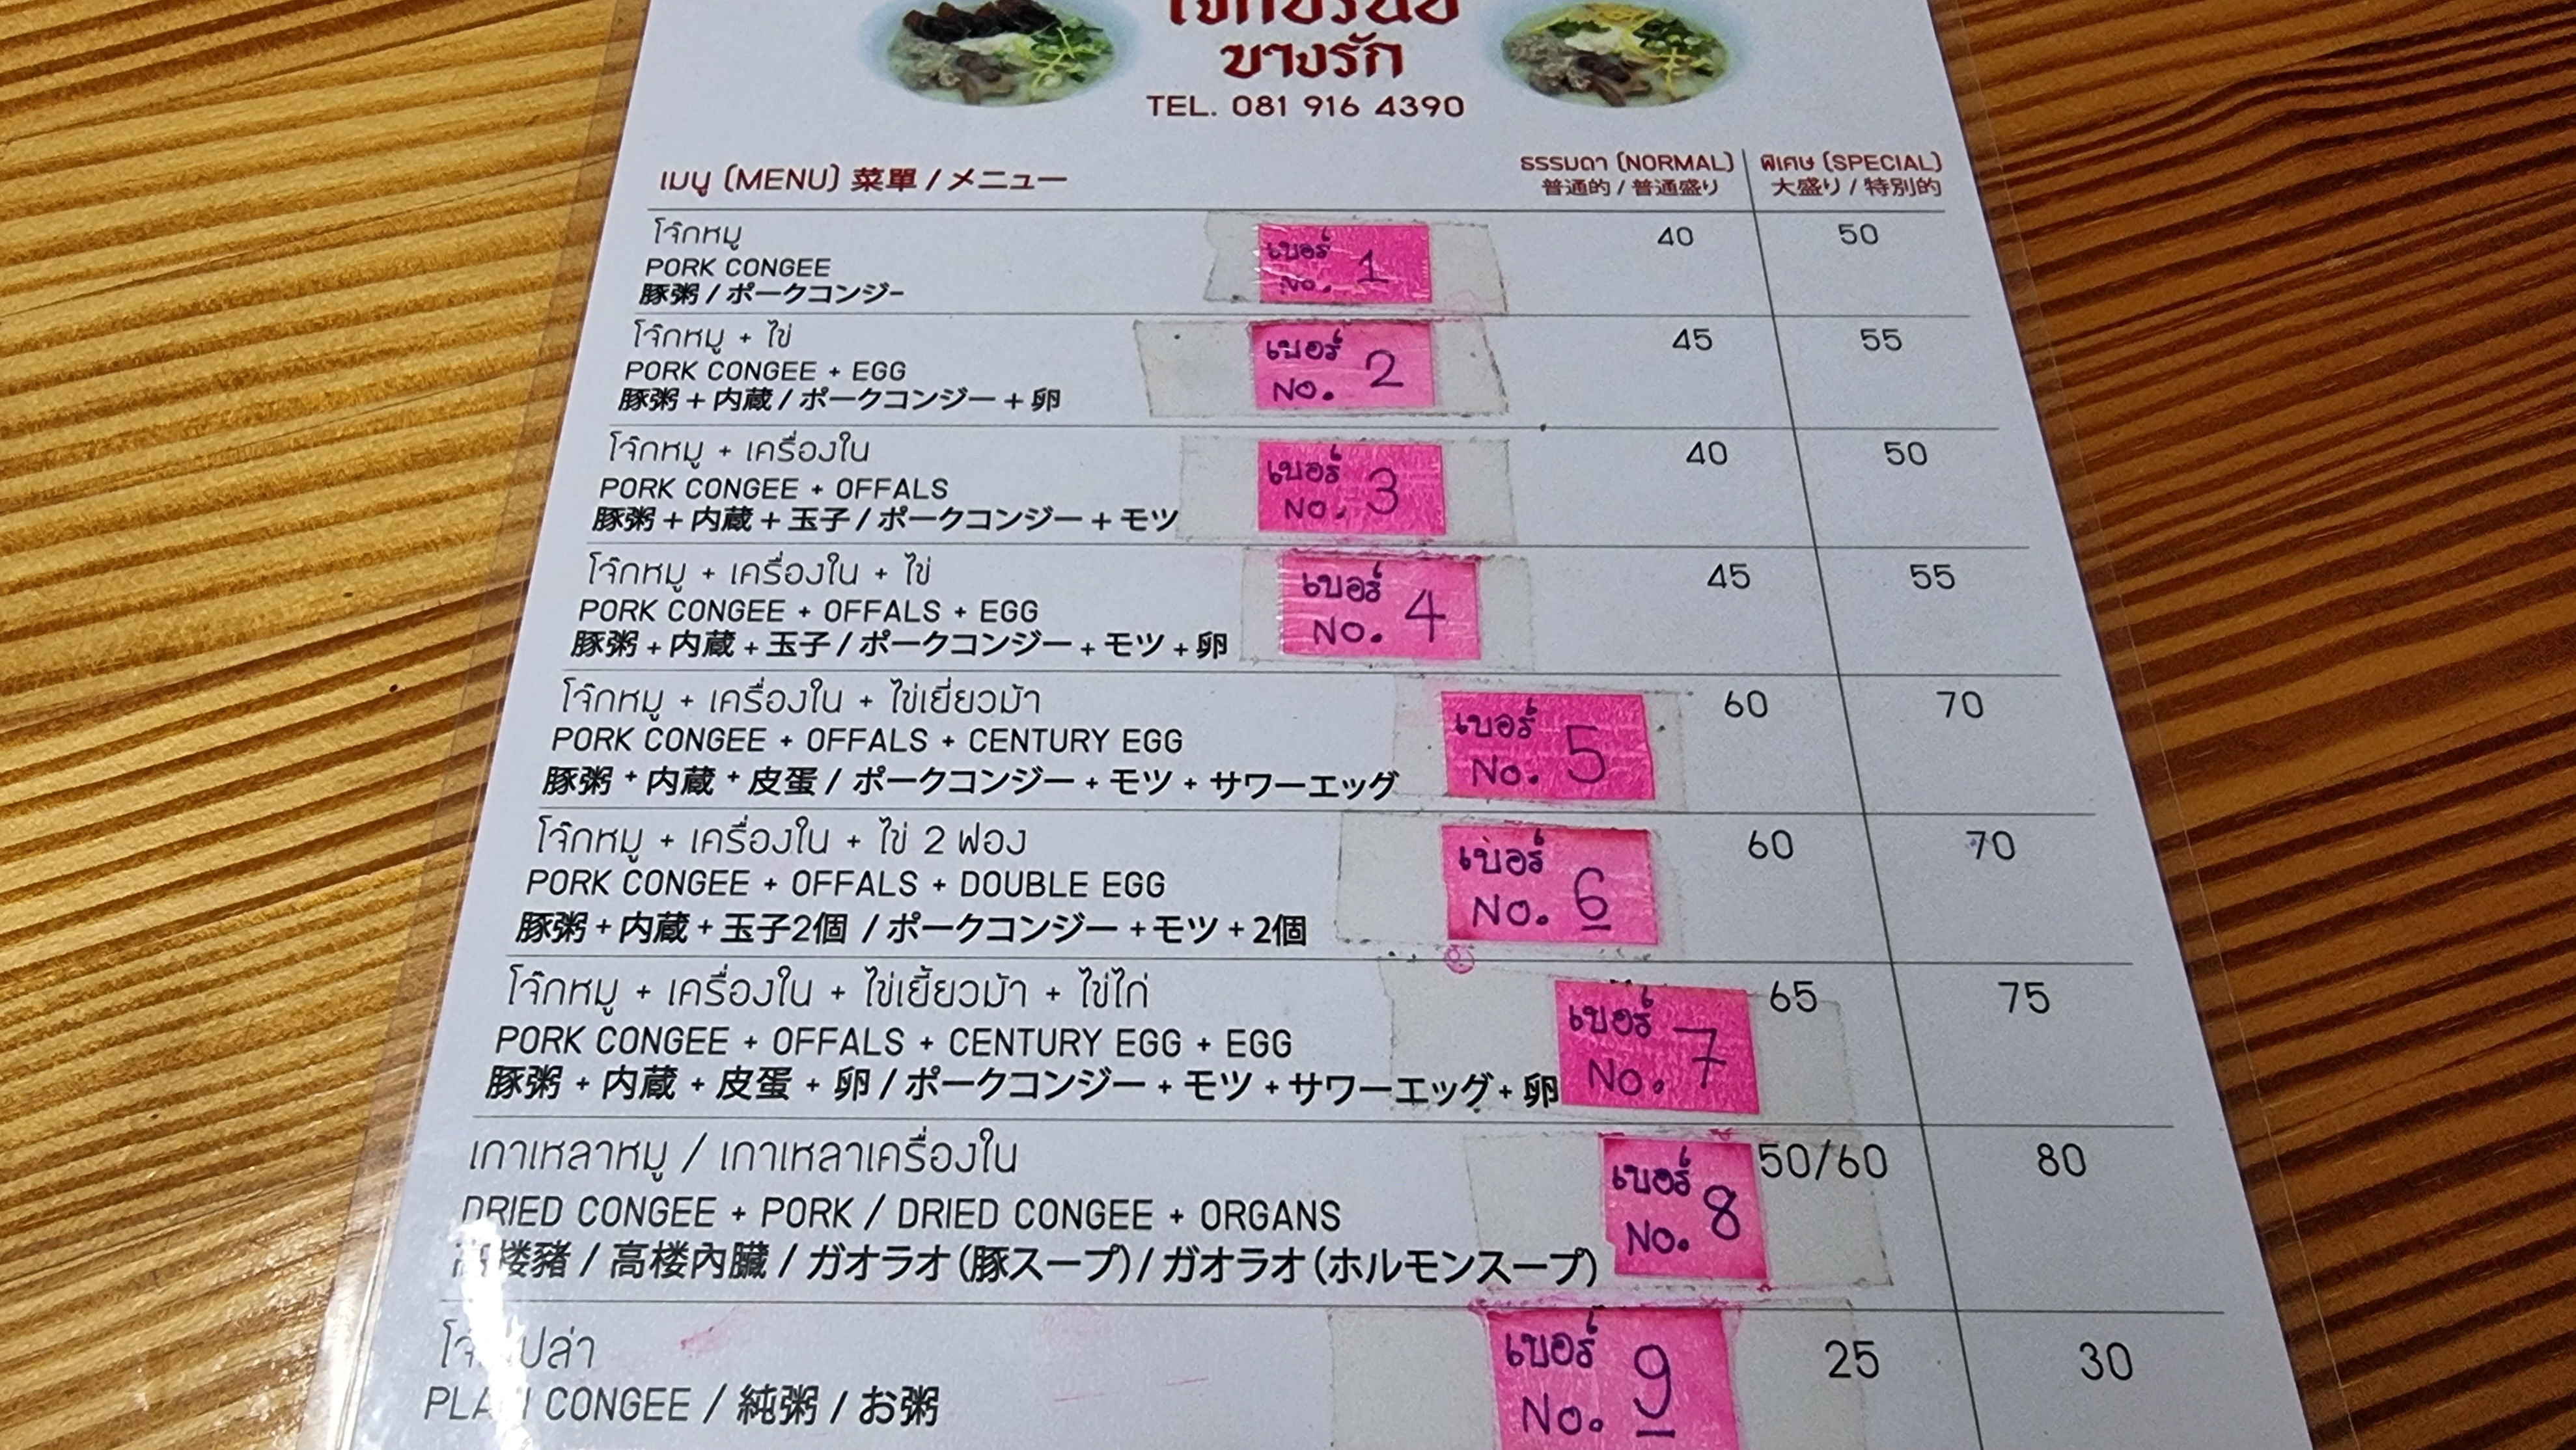 บางรัก
TEL. 081 916 4390
เมนู (MENU) 菜單 / メニュー
ธรรมดา (NORMAL)
普通的 / 普通盛り
พิเศษ (SPECIAL)
大盛り / 特別的
โจ๊กหมู
PORK CONGEE
豚粥 / ポークコンジー
เบอร์ 1
No.
40
50
โจ๊กหมู + ไข่
PORK CONGEE + EGG
豚粥 + 内蔵 / ポークコンジー + 卵
เบอร์ 2
No.
45
55
โจ๊กหมู + เครื่องใน
PORK CONGEE + OFFALS
豚粥 + 内蔵 + 玉子 / ポークコンジー + モツ
เบอร์ 3
No.
40
50
โจ๊กหมู + เครื่องใน + ไข่
PORK CONGEE + OFFALS + EGG
豚粥 + 内蔵 + 玉子 / ポークコンジー + モツ + 卵
เบอร์ 4
No.
45
55
โจ๊กหมู + เครื่องใน + ไข่เยี่ยวม้า
PORK CONGEE + OFFALS + CENTURY EGG
豚粥 + 内蔵 + 皮蛋 / ポークコンジー + モツ + サワーエッグ
เบอร์ 5
No.
60
70
โจ๊กหมู + เครื่องใน + ไข่ 2 ฟอง
PORK CONGEE + OFFALS + DOUBLE EGG
豚粥 + 内蔵 + 玉子2個 / ポークコンジー + モツ + 2個
เบอร์ 6
No.
60
70
โจ๊กหมู + เครื่องใน + ไข่เยี้ยวม้า + ไข่ไก่
PORK CONGEE + OFFALS + CENTURY EGG + EGG
豚粥 + 内蔵 + 皮蛋 + 卵 / ポークコンジー + モツ + サワーエッグ + 卵
เบอร์ 7
No.
65
75
เกาเหลาหมู / เกาเหลาเครื่องใน
DRIED CONGEE + PORK / DRIED CONGEE + ORGANS
高楼豬 / 高楼內臓 / ガオラオ (豚スープ) / ガオラオ (ホルモンスープ)
เบอร์ 8
No.
50/60
80
โจ๊กเปล่า
PLAIN CONGEE / 純粥 / お粥
เบอร์ 9
No.
25
30